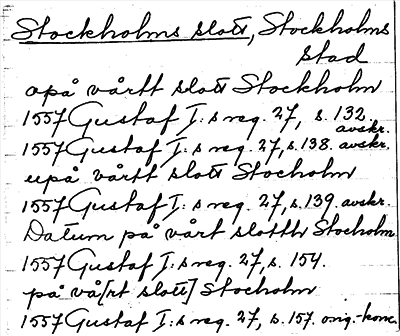 Stockholms slott, Stockholms
stad
opå vårtt slott Stockholm
1557 Gustaf I:s reg. 27, s. 132.
avskr.
1557 Gustaf I:s reg. 27, s. 138. avskr.
upå vårtt slott Stocholm
1557 Gustaf I:s reg. 27, s. 139. avskr.
Datum på vårt slotth Stocholm
1557 Gustaf I:s reg. 27, s. 154.
på vå[rt slott] Stocholm
1557 Gustaf I:s reg. 27, s. 157. orig.-konc.